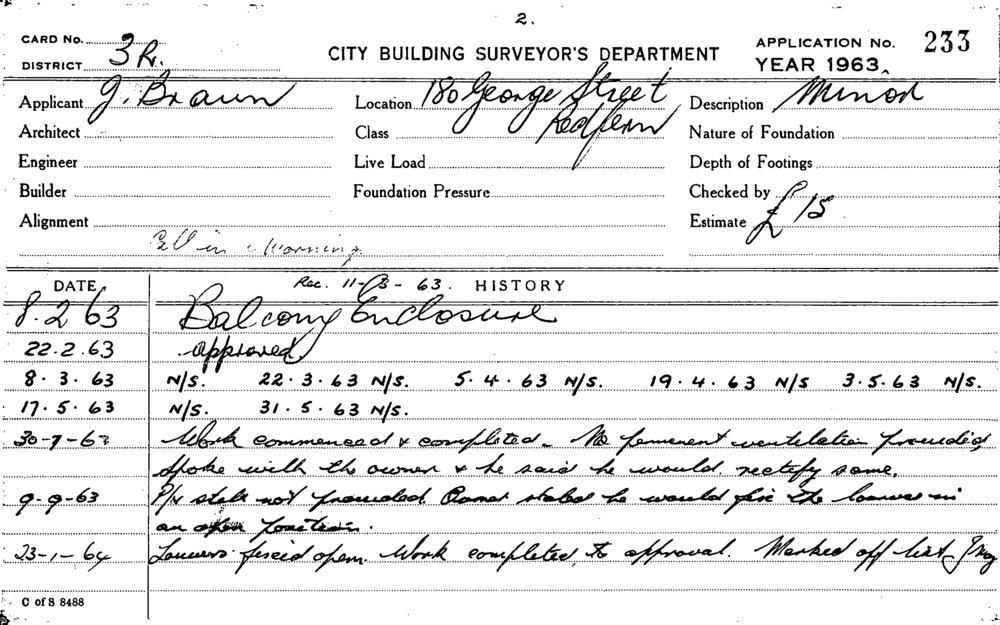 2.
CARD No. 3R. CITY BUILDING SURVEYOR'S DEPARTMENT APPLICATION No. 233
DISTRICT YEAR 1963
Applicant J. Braun Location 180 George Street Description Minor
Architect Class Redfern Nature of Foundation
Engineer Live Load Depth of Footings
Builder Foundation Pressure Checked by
Alignment Estimate £15
Call in Morning
DATE Rec. 11-3-63. HISTORY
8.2 63 Balcony Enclosure
22.2.63 approved
8.3.63 N/S. 22.3.63 N/S. 5.4.63 N/S. 19.4.63 N/S 3.5.63 N/S.
17.5.63 N/S. 31.5.63 N/S.
30-7-63 Work commenced & completed. No permenent ventilation provided,
spoke with the owner & he said he would rectify same.
9-9-63 P/V still not provided. Owner stated he would fix the louvres in
an open position.
23-1-64 Louvers fixed open. Work completed to approval. Marked off list
C of S 8488